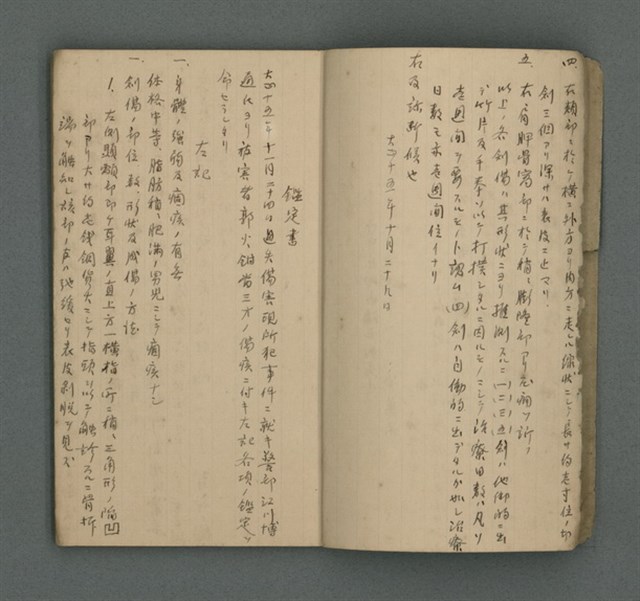 四、右頸部ニ於ケ横ニ外方ヨリ内方ニ走レル線状ニシテ長サ約壱寸位ノ切
創三個アリ深サハ表皮ニ止マリ
五、右肩胛骨窩部ニ於テ稍々膨隆部アリ疼痛ヲ訴フ
以上ノ各創傷ハ其形状ニヨリ推測スルニ(一)(二)(三)(五)創ハ他働的ニ出
デ竹片及手拳ヲ以テ打撲シタルニ因ルモノニシテ治療日数ハ凡ソ
壱週間ヲ要スルモノト認ム(四)創ハ自働的ニ出デタルガ如シ治療
日数モ亦壱週間位イナリ
右及診断候也
大正十五年十月二十九日
鑑定書
大正十五年十一月二十四日過失傷害現所犯事件ニ就キ警部江川博
通ヨリ被害者郭火
三方ノ傷痍ニ付キ左記各項ノ鑑定ヲ
命セラレタリ
左記
一、身體ノ強弱及痼疾ノ有無
体格中等、脂肪稍々肥満ノ男児ニシテ痼疾ナシ
一、創傷ノ部位、数、形状及成傷ノ方法
1、左側顳顬部即ケ耳翼ノ直上方一横指ノ所ニ稍々三角形ノ陥凹
部アリ大サ約壱銭銅貨大ニシテ指頭ヲ以テ触診スルニ骨折
端ヲ触知シ該部ノ
表皮剥脱ヲ見ズ